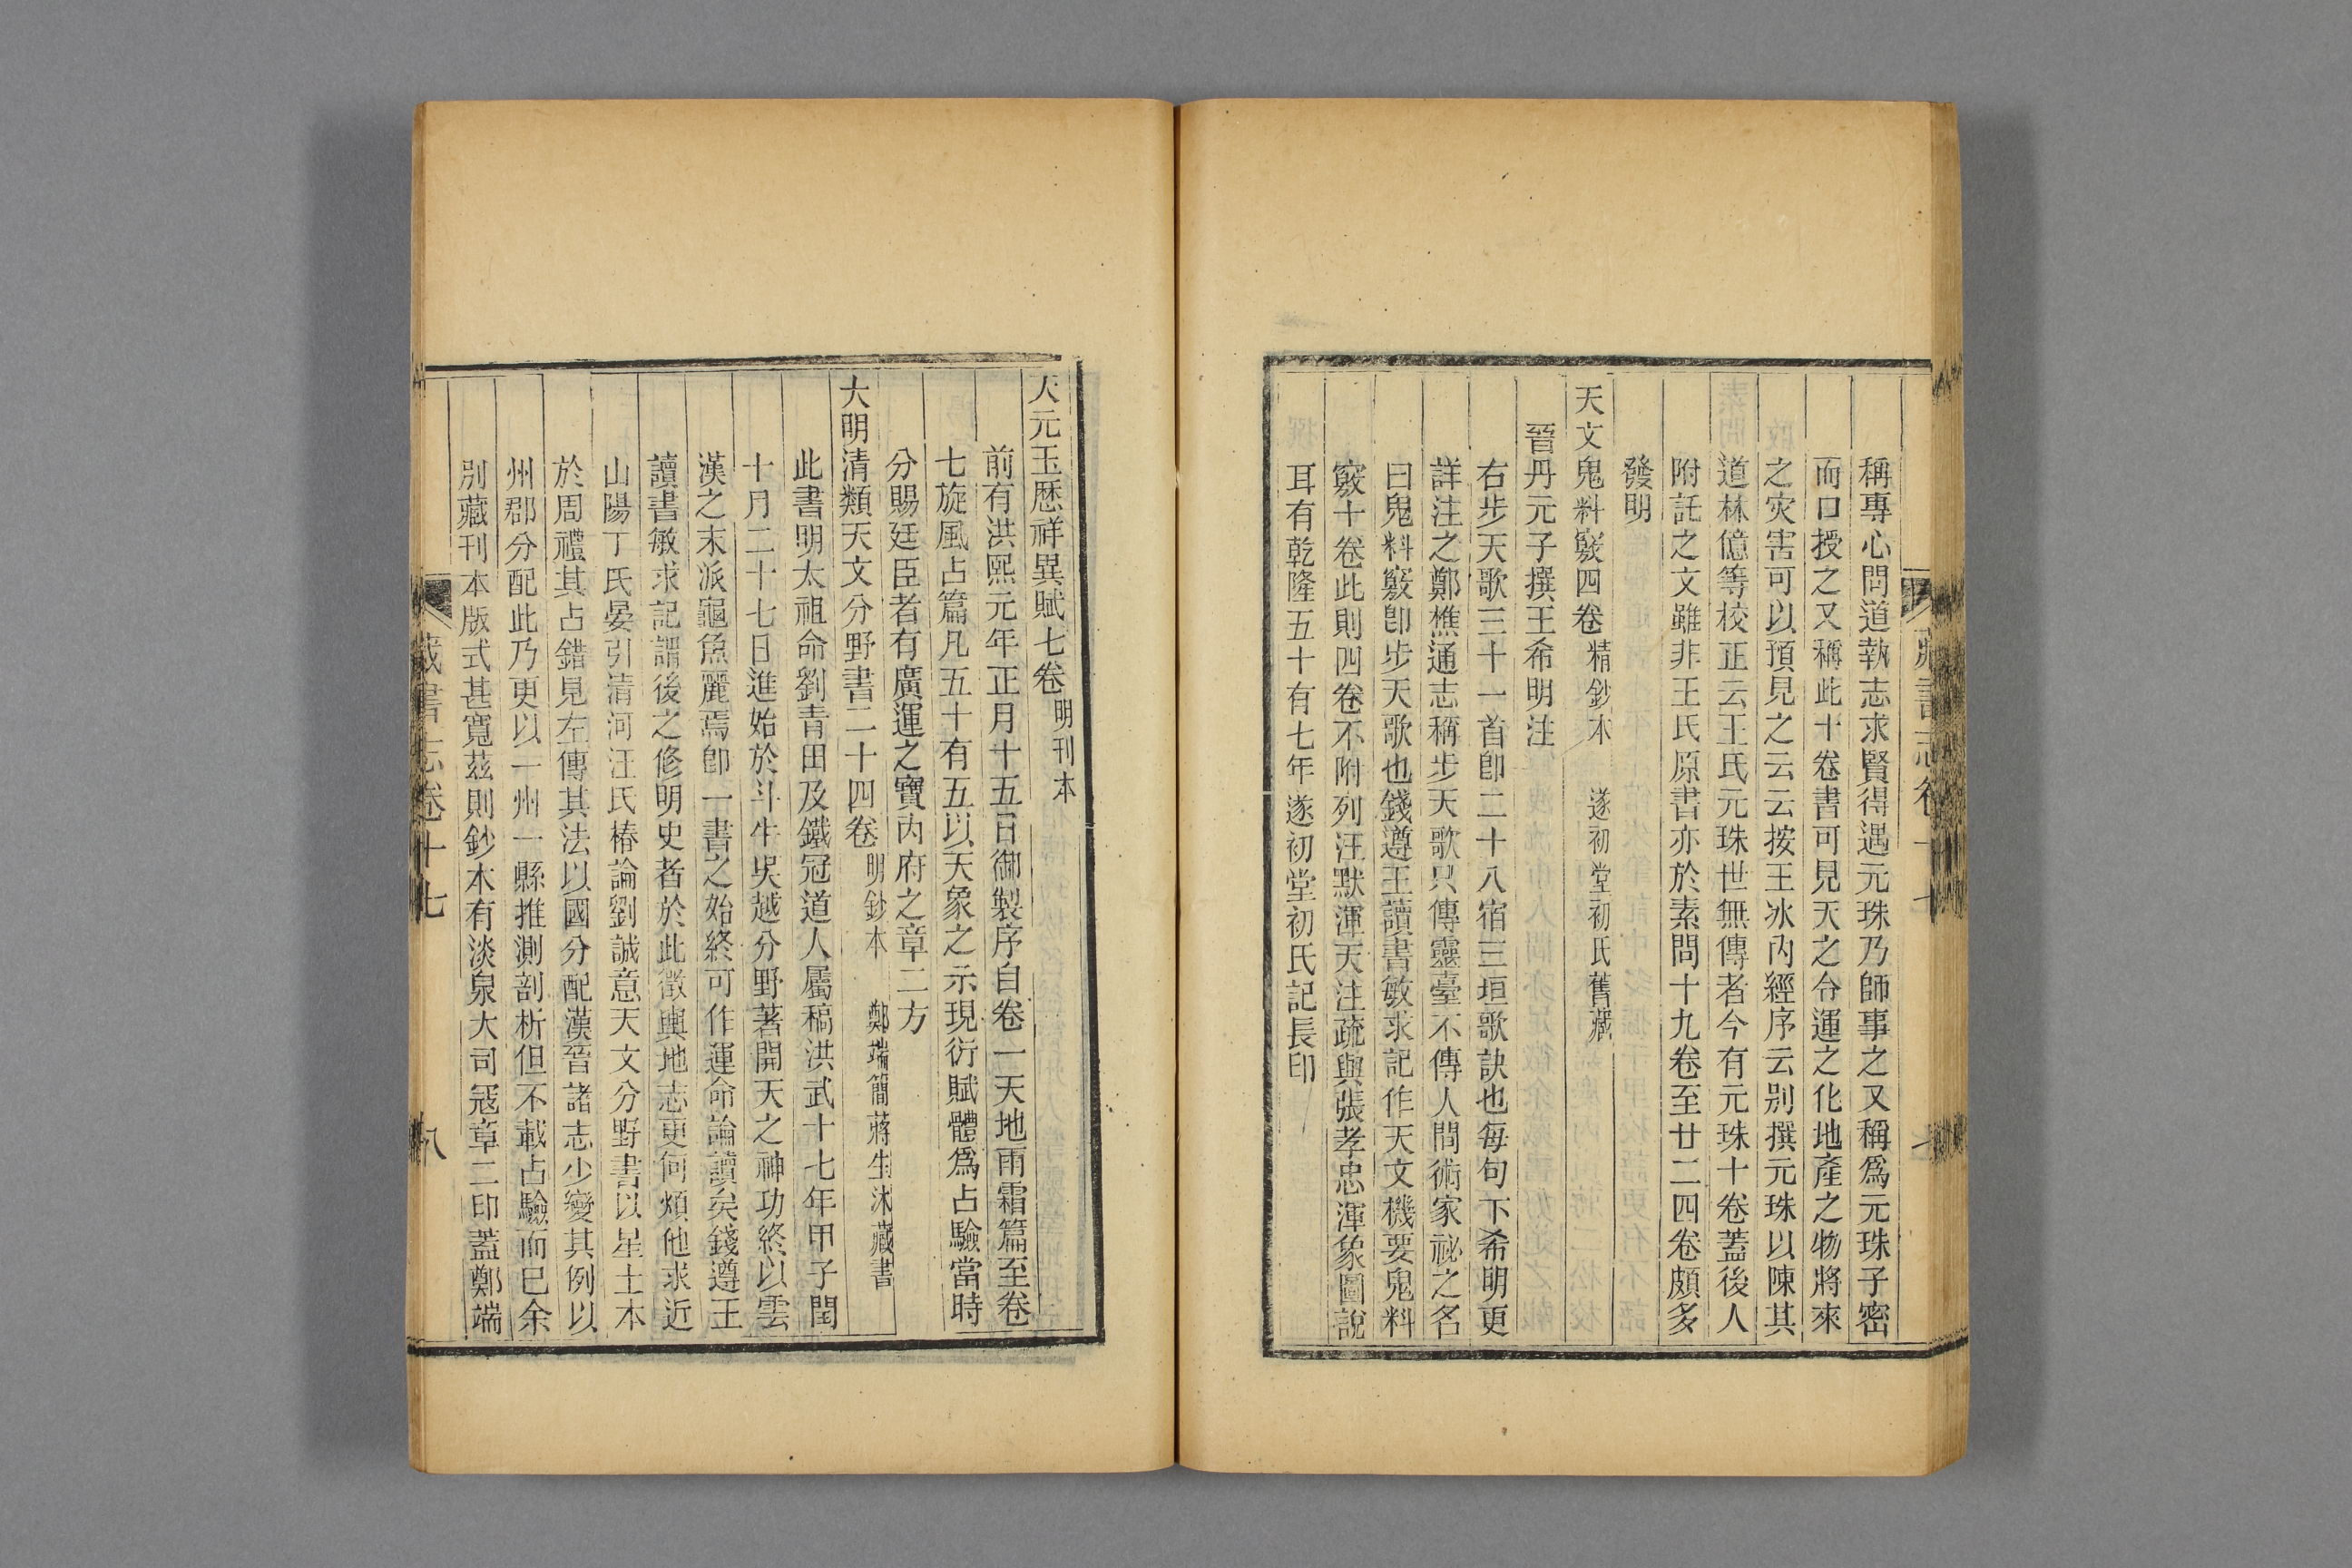 稱專心問道執志求賢得遇元珠乃師事之又稱爲元珠子密
而口授之又稱此十卷書可見天之令運之化地產之物將來
之灾害可以預見之云云按王冰內經序云別撰元珠以陳其
道林億等校正云王氏元珠世無傳者今有元珠十卷蓋後人
附託之文雖非王氏原書亦於素問十九卷至廿二四卷頗多
發明
天文鬼料竅四卷 精鈔本 遂初堂初氏舊藏
晉丹元子撰王希明注
右步天歌三十一首卽二十八宿三垣歌訣也每句下希明更
詳注之鄭樵通志稱步天歌只傳靈臺不傳人間術家祕之名
曰鬼料竅卽步天歌也錢遵王讀書敏求記作天文機要鬼料
竅十卷此則四卷不附列汪默渾天注疏與張孝忠渾象圖說
耳有乾隆五十有七年遂初堂初氏記長印
天元玉歷祥異賦七卷 明刊本
前有洪熙元年正月十五日御製序自卷一天地雨霜篇至卷
七旋風占篇凡五十有五以天象之示現衍賦體爲占驗當時
分賜廷臣者有廣運之寶內府之章二方
大明清類天文分野書二十四卷 明鈔本 鄭端簡蔣生沐藏書
此書明太祖命劉青田及鐵冠道人屬稿洪武十七年甲子閏
十月二十七日進始於斗牛吳越分野著開天之神功終以雲
漢之末派龜魚麗焉卽一書之始終可作運命論讀矣錢遵王
讀書敏求記謂後之修明史者於此徵輿地志更何煩他求近
山陽丁氏晏引清河汪氏椿論劉誠意天文分野書以星土本
於周禮其占錯見左傳其法以國分配漢晉諸志少變其例以
州郡分配此乃更以一州一縣推測剖析但不載占驗而已余
別藏刊本版式甚寬茲則鈔本有淡泉大司寇章二印蓋鄭端
藏書志卷十七
八